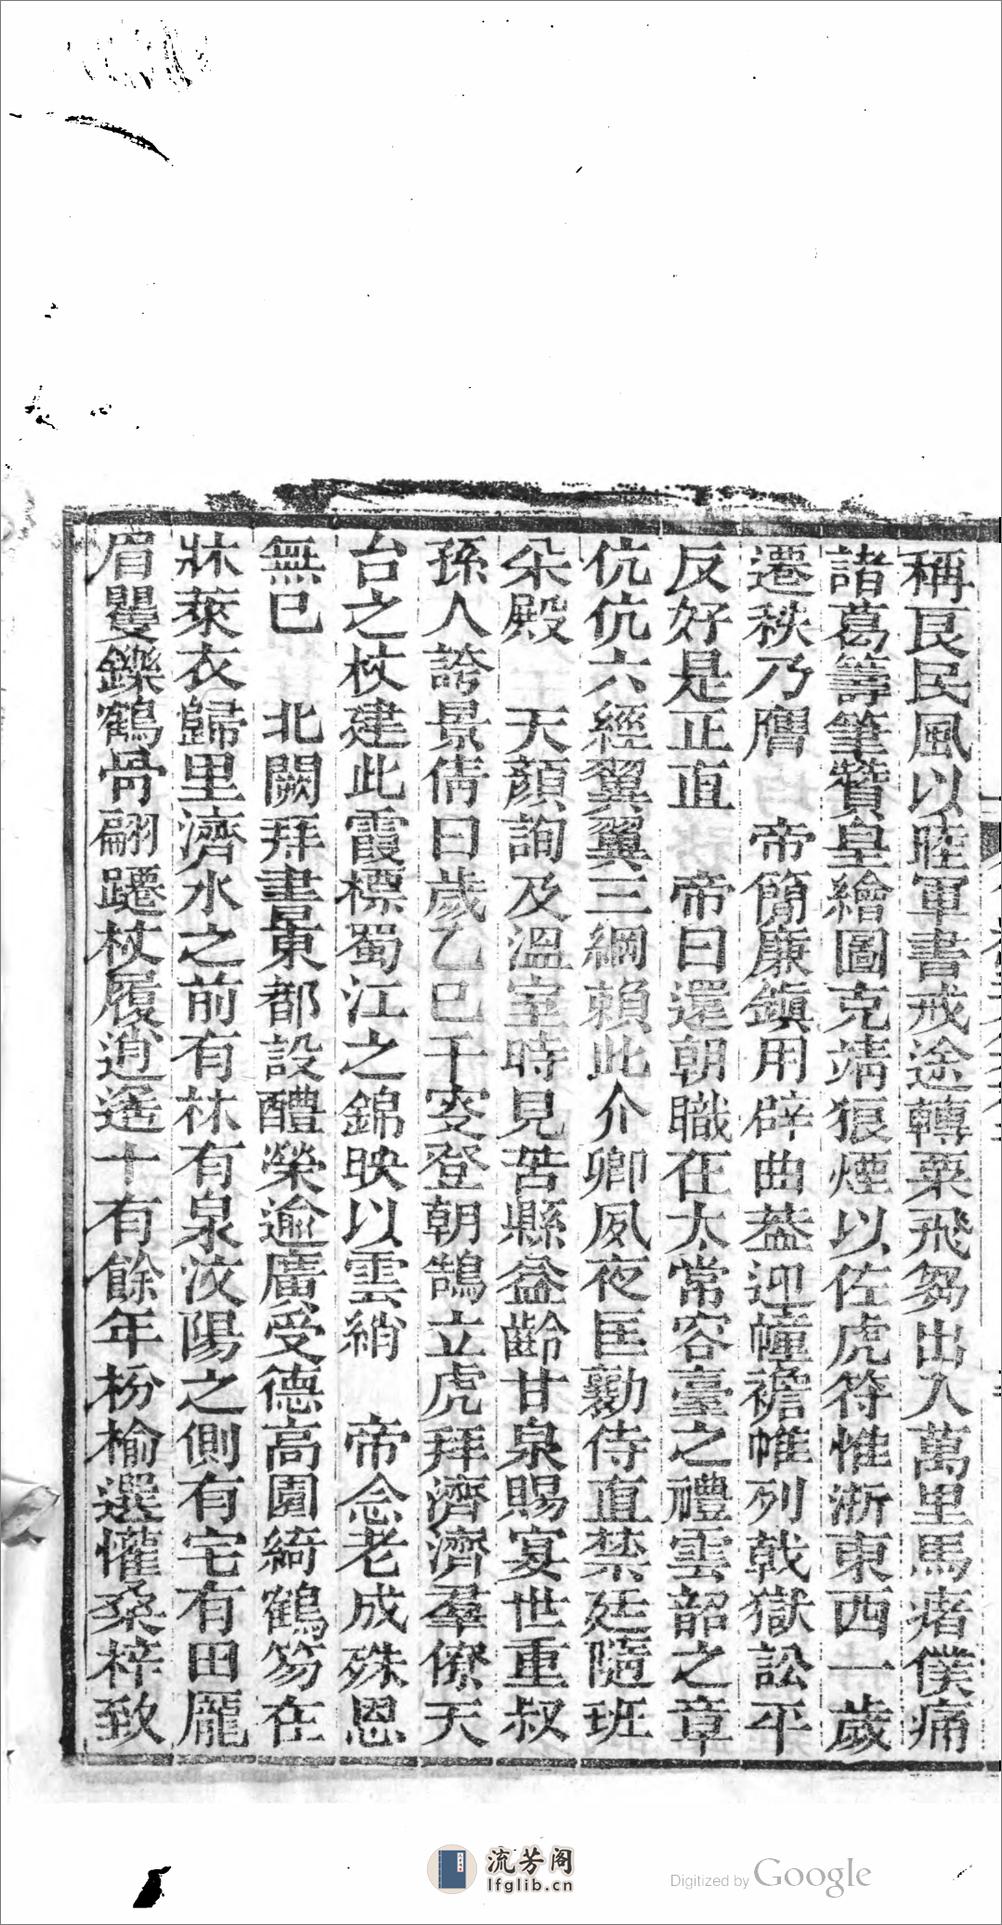 稱良民風以睦軍書戒途轉粟飛芻出入萬里馬瘏僕痛
諸葛籌筆贊皇繪圖克靖狼煙以佐虎符惟浙東西一歲
遷秩乃膺　帝簡廉鎮用辟曲蓋迎幢襜帷列戟獄訟平
反好是正直　帝曰還朝職在太常容臺之禮雲韶之章
伉伉六經翼翼三綱賴此介卿夙夜匡勷侍直禁廷隨班
朵殿　天顏詢及溫室時見苦縣益齡甘泉賜宴世重叔
孫人誇景倩曰歲乙巳千叜登朝鵠立虎拜濟濟羣僚天
台之杖建此霞標蜀江之錦映以雲綃　帝念老成殊恩
無已　北闕拜書東都設醴榮逾廣受德高園綺鶴笏在
牀萊衣歸里濟水之前有林有泉汶陽之側有宅有田龐
眉矍鑠鶴骨翩躚杖履逍遙十有餘年枌榆選懽桑梓致
流芳阁
lfglib.cn
Digitized by Google